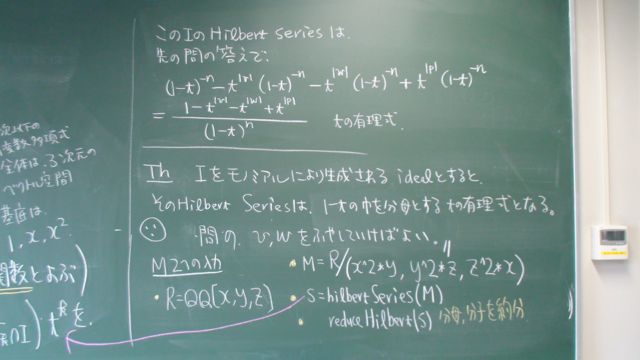 次以下の
変数多項式
全体は、3次元の
ベクトル空間
基底は、
1, x, x².
関数とよぶ)
t^k を.
このIのHilbert Seriesは、
先の問の答えで、
(1-t)^{-n} - t^{|v|} (1-t)^{-n} - t^{|w|} (1-t)^{-n} + t^{|p|} (1-t)^{-n}
= \frac{1 - t^{|v|} - t^{|w|} + t^{|p|}}{(1-t)^n} tの有理式.
Th Iをモノミアルにより生成される idealとすると、
そのHilbert Seriesは、1-tの巾を分母とするtの有理式となる。
∵ 問の v, wをふやしていけばよい. 〃
M2への入力
・R=QQ[x,y,z]
・M=R/(x^2*y, y^2*z, z^2*x)
・S=hilbertSeries(M)
・reduceHilbert(S) 分母,分子を約分